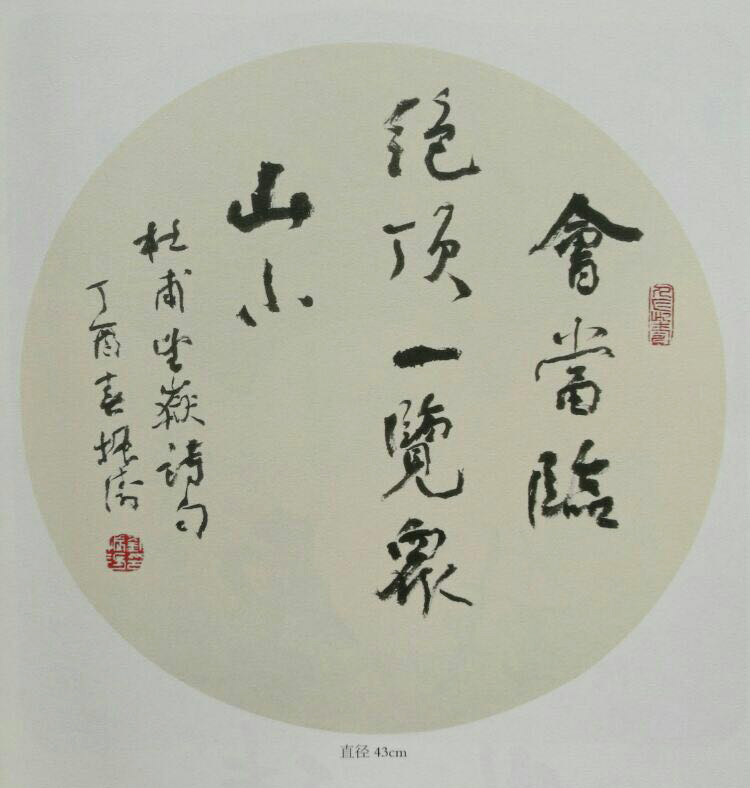 會當臨
絕頂一覽衆
山小
杜甫望嶽詩句
丁酉春振
直径 43cm